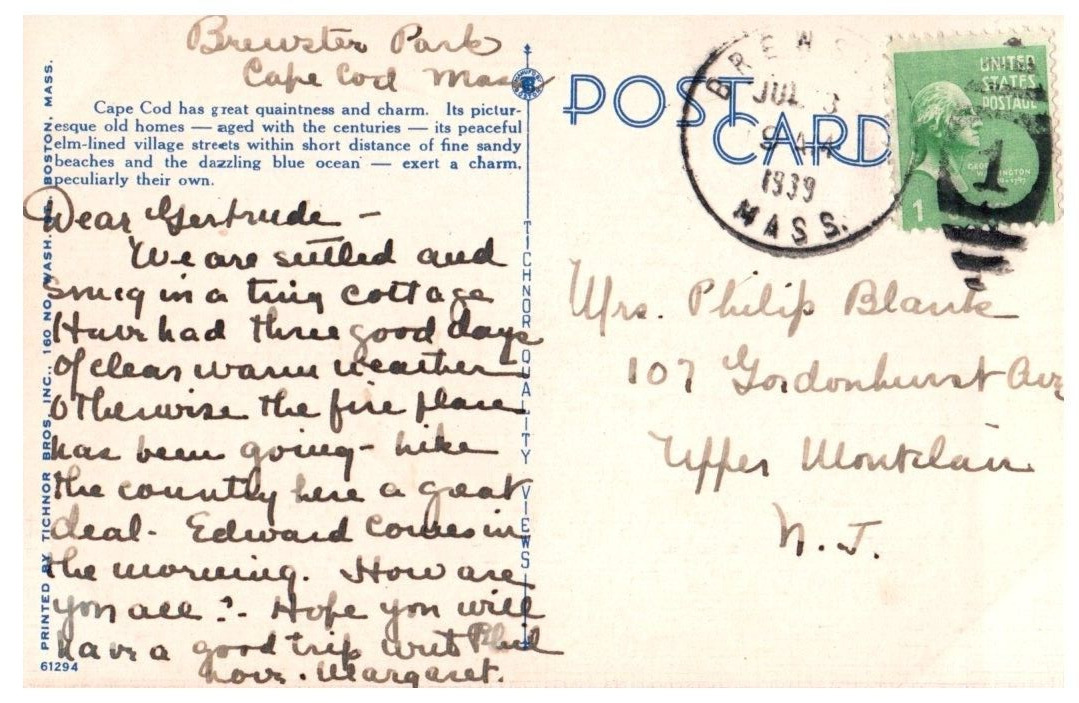 Brewster Park
Cape Cod Mass
Cape Cod has great quaintness and charm. Its pictur-
esque old homes — aged with the centuries — its peaceful
elm-lined village streets within short distance of fine sandy
beaches and the dazzling blue ocean — exert a charm,
peculiarly their own.
Dear Gertrude -
We are settled and
snug in a tiny cottage
Have had three good days
of clear warm weather
otherwise the fire place
has been going - hike
the country here a great
deal. Edward comes in
the morning. How are
you all? Hope you will
have a good trip with Phil
Love. Margaret.
61294
PRINTED BY TICHNOR BROS. INC., 160 NO. WASH. BOSTON, MASS.
TICHNOR QUALITY VIEWS
POST
CARD
BREWS
JUL 3
9 AM
1939
MASS.
UNITED
STATES
POSTAGE
GEORGE
WASHINGTON
1
1
Mrs. Philip Blank
107 Gordonhurst Ave
Upper Montclair
N. J.